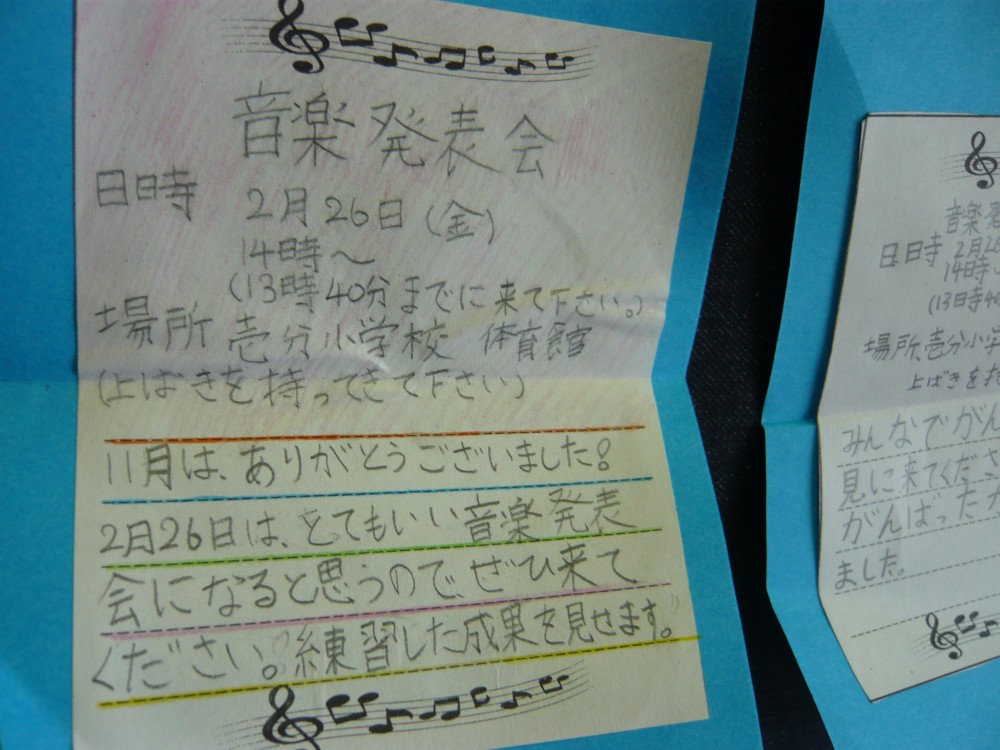 音楽発表会
日時 2月26日(金)
14時〜
(13時40分までに来て下さい。)
場所 壱分小学校 体育館
(上ばきを持ってきて下さい)
11月は、ありがとうございました!
2月26日は、とてもいい音楽発表
会になると思うので、ぜひ来て
ください。練習した成果を見せます。
音楽発
日時 2月26
14時
(13時4
場所、壱分小学
上ばきを持
みんなでがん
見に来てくださ
がんばった
ました。